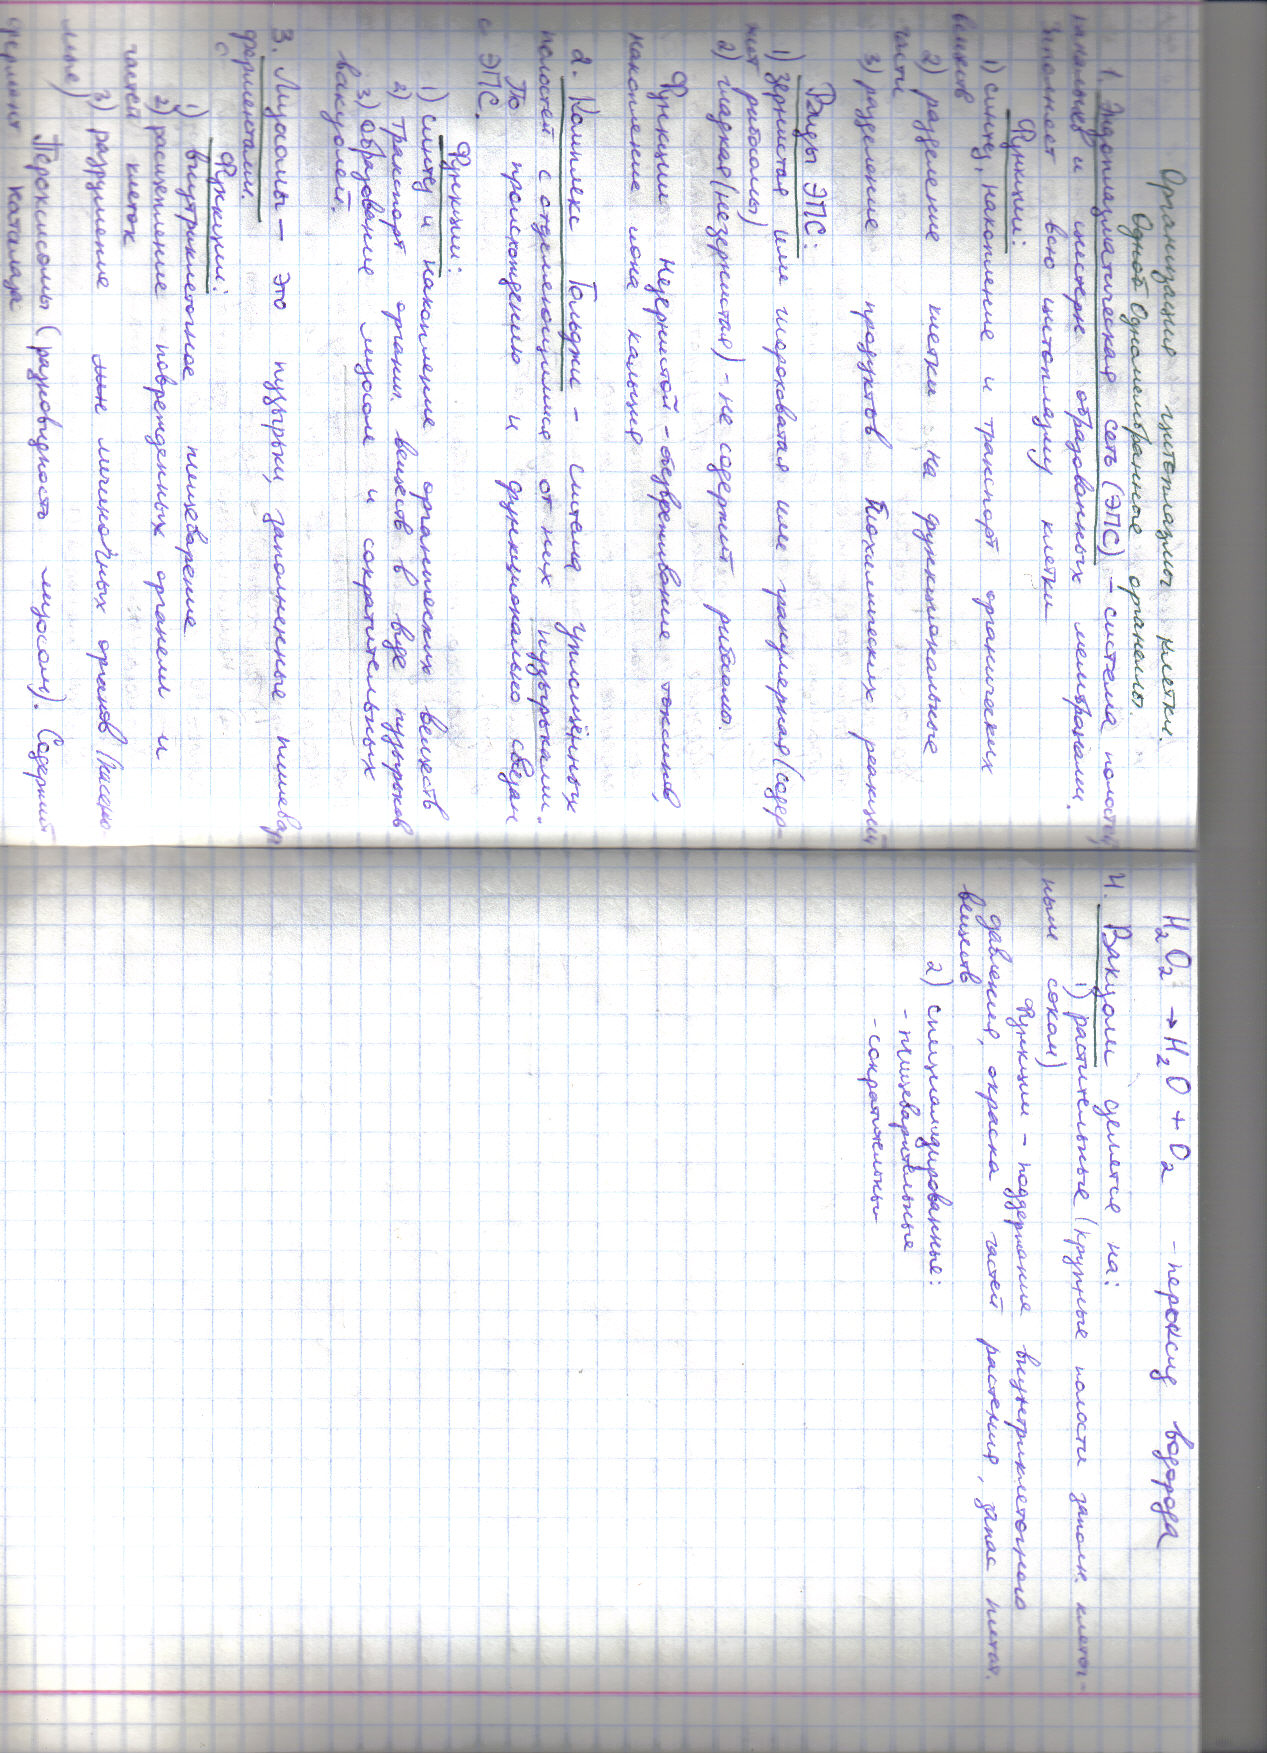 Организация цитоплазмы клетки.
Одной Одномембранные органеллы.
1. Эндоплазматическая сеть (ЭПС) – система полостей,
канальцев и цистерн, образованных мембранами.
Заполняет всю цитоплазму клетки.
Функции:
1) синтез, накопление и транспорт органических
веществ
2) разделение клетки на функциональные
части
3) разделение продуктов биохимических реакций
Виды ЭПС:
1) зернистая или шероховатая или гранулярная (содер-
жит рибосомы)
2) гладкая (незернистая) – не содержит рибосомы.
Функции незернистой – обезвреживание токсинов,
накопление иона кальция
2. Комплекс Гольджи – система уплощённых
полостей с отделяющимися от них пузырьками.
По происхождению и функционально связан
с ЭПС.
Функции:
1) синтез и накопление органических веществ
2) транспорт органич. веществ в виде пузырьков
3) образование лизосом и сократительных
вакуолей.
3. Лизосомы – это пузырьки, заполненные пищевар
ферментами.
Функции:
1) внутриклеточное пищеварение
2) расщепление поврежденных органелл и
частей клеток
3) разрушение личиночных органов (насеко-
мые)
Пероксисомы (разновидность лизосом). Содержит
фермент каталаза
H₂O₂ → H₂O + O₂ – пероксид водорода
4. Вакуоли делятся на:
1) растительные (крупные полости заполн. клеточ-
ным соком)
Функции – поддержание внутриклеточного
давления, окраска частей растения, запас питат.
веществ
2) специализированные:
- пищеварительные
- сократительные